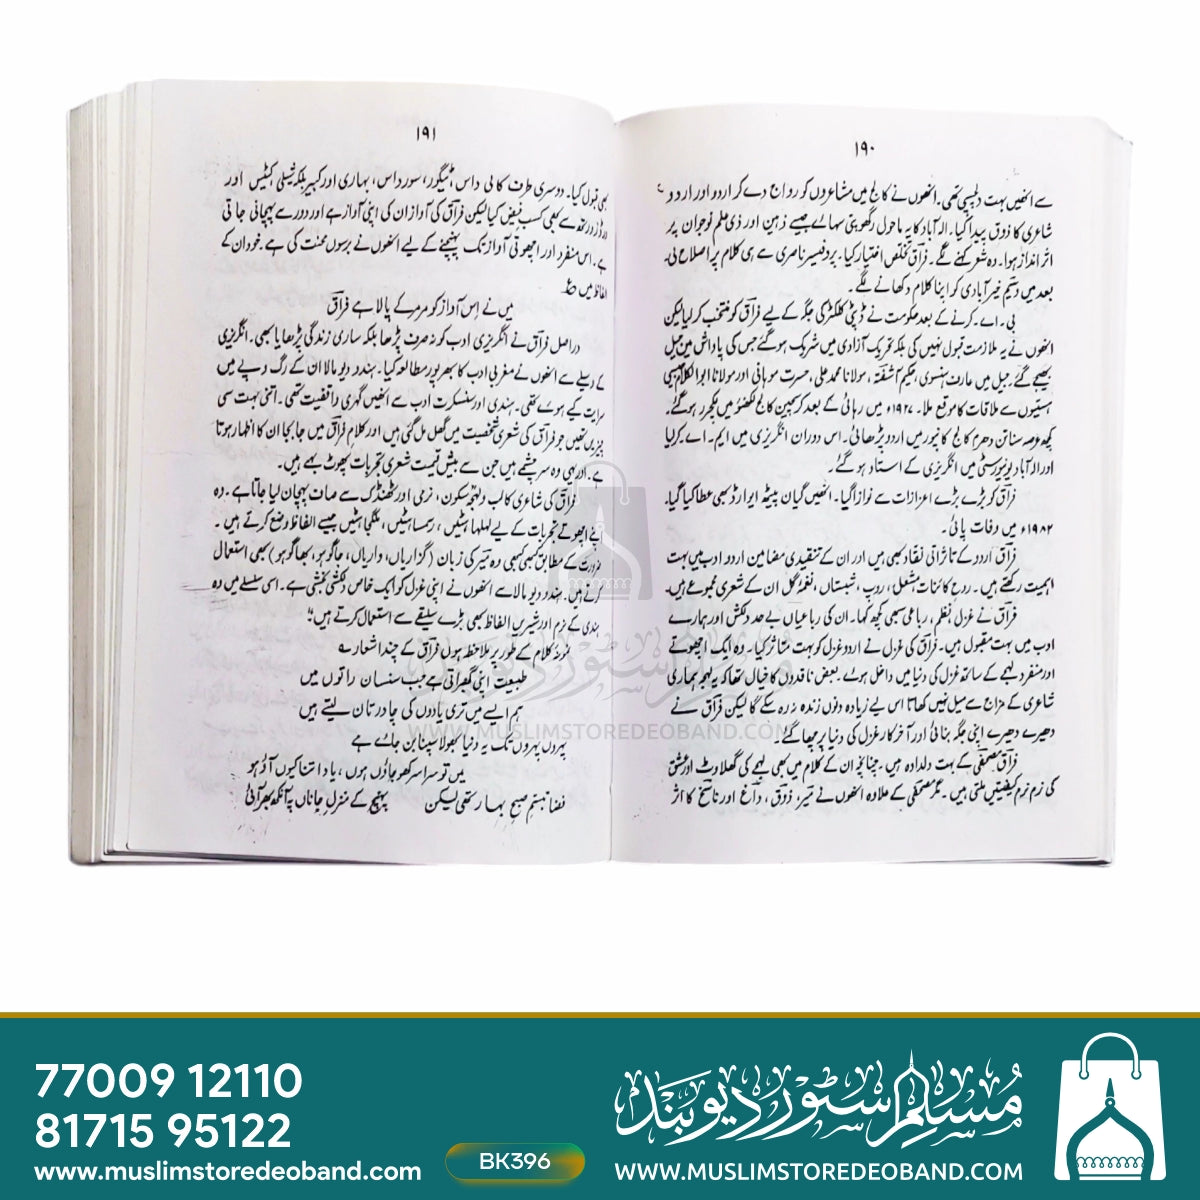 ۱۹۰
سے انھیں بہت دلچسپی تھی۔ انھوں نے کالج میں مشاعروں کو رواج دے کر اردو اور اردو
شاعری کا ذوق پیدا کیا۔ الہ آباد کا یہ ماحول رگھوپتی سہائے جیسے ذہین اور ذی علم نوجوان پر
اثر انداز ہوا۔ وہ شعر کہنے لگے۔ فراق تخلص اختیار کیا۔ پروفیسر ناصری سے ہی کلام پر اصلاح لی۔
بعد میں وسیم خیرآبادی کو اپنا کلام دکھانے لگے۔
بی۔ اے۔ کرنے کے بعد حکومت نے ڈپٹی کلکٹری کی جگہ کے لیے فراق کو منتخب کر لیا لیکن
انھوں نے یہ ملازمت قبول نہیں کی بلکہ تحریک آزادی میں شریک ہو گئے جس کی پاداش میں جیل
بھیجے گئے۔ جیل میں عارف ہنسوی، حکیم آشفتہ، مولانا محمد علی، حسرت موہانی اور مولانا ابوالکلام جیسی
ہستیوں سے ملاقات کا موقع ملا۔ ۱۹۲۴ء میں رہائی کے بعد کرسچین کالج لکھنؤ میں لکچرر ہو گئے۔
کچھ عرصہ سناتن دھرم کالج کانپور میں اردو پڑھائی۔ اس دوران انگریزی میں ایم۔ اے۔ کر لیا
اور الہ آباد یونیورسٹی میں انگریزی کے استاد ہو گئے۔
فراق کو بڑے بڑے اعزازات سے نوازا گیا۔ انھیں گیان پیٹھ ایوارڈ بھی عطا کیا گیا
۱۹۸۲ء میں وفات پائی۔
فراق اردو کے تاثراتی نقاد بھی ہیں اور ان کے تنقیدی مضامین اردو ادب میں بہت
اہمیت رکھتے ہیں۔ روح کائنات، مشعل، روپ، شبستاں، نغمۂ گل ان کے شعری مجموعے ہیں۔
فراق نے غزل، نظم، رباعی سبھی کچھ کہا۔ ان کی رباعیاں بے حد دلکش اور ہمارے
ادب میں بہت مقبول ہیں۔ فراق کی غزل نے اردو غزل کو بہت متاثر کیا۔ وہ ایک اچھوتے
اور منفرد لہجے کے ساتھ غزل کی دنیا میں داخل ہوئے۔ بعض ناقدوں کا خیال تھا کہ یہ لہجہ ہماری
شاعری کے مزاج سے میل نہیں کھاتا اس لیے زیادہ دنوں زندہ نہ رہ سکے گا لیکن فراق نے
دھیرے دھیرے اپنی جگہ بنائی اور آخر کار غزل کی دنیا پر چھا گئے۔
فراق مصحفی کے بہت دلدادہ ہیں۔ چنانچہ ان کے کلام میں بھی لہجے کی گھلاوٹ اور عشق
کی نرم نرم کیفیتیں ملتی ہیں۔ مگر مصحفی کے علاوہ انھوں نے میر، ذوق، داغ اور ناسخ کا اثر
۱۹۱
بھی قبول کیا۔ دوسری طرف کالی داس، ٹیگور، سورداس، بہاری اور کبیر بلکہ شیلی کیٹس اور
ورڈزورتھ سے بھی کسب فیض کیا لیکن فراق کی آواز ان کی اپنی آواز ہے اور دور سے پہچانی جاتی
ہے۔ اس منفرد اور اچھوتی آواز تک پہنچنے کے لیے انھوں نے برسوں محنت کی ہے۔ خود ان کے
الفاظ میں
میں نے اس آواز کو مر مر کے پالا ہے فراق
دراصل فراق نے انگریزی ادب کو نہ صرف پڑھا بلکہ ساری زندگی پڑھایا بھی۔ انگریزی
کے وسیلے سے انھوں نے مغربی ادب کا بھرپور مطالعہ کیا۔ ہندو دیومالا ان کے رگ و پے میں
سرایت کیے ہوئے تھی۔ ہندی اور سنسکرت ادب سے انھیں گہری واقفیت تھی۔ اتنی بہت سی
چیزیں تھیں جو فراق کی شعری شخصیت میں گھل مل گئی ہیں اور کلام فراق میں جا بجا ان کا اظہار ہوتا
ہے اور یہی وہ سرچشمے ہیں جن سے بیش قیمت شعری تجربات پھوٹ بہے ہیں۔
فراق کی شاعری کا لب و لہجہ سکون، نرمی اور ٹھنڈک سے صاف پہچان لیا جاتا ہے۔ وہ
اپنے اچھوتے تجربات کے لیے لہلہاہٹیں، رسمساہٹیں، ملگجاہٹیں جیسے الفاظ وضع کرتے ہیں۔
ضرورت کے مطابق کبھی کبھی وہ میر کی زبان (گزاریاں، واریاں، جاگو ہو، بھاگو ہو) بھی استعمال
کرتے ہیں۔ ہندو دیومالا سے انھوں نے اپنی غزل کو ایک خاص دلکشی بخشی ہے۔ اسی سلسلے میں وہ
ہندی کے نرم اور شیریں الفاظ بھی بڑے سلیقے سے استعمال کرتے ہیں۔
نمونۂ کلام کے طور پر ملاحظہ ہوں فراق کے چند اشعار
طبیعت اپنی گھبراتی ہے جب سنسان راتوں میں
ہم ایسے میں تری یادوں کی چادر تان لیتے ہیں
پہروں پہروں تک یہ دنیا بھولا سپنا بن جائے ہے
میں تو سراسر کھو جاؤں ہوں، یاد اتنا کیوں آؤ ہو
فضا تبسم صبح بہار تھی لیکن پہنچ کے منزل جاناں پہ آنکھ بھر آئی
مسلم سٹور دیوبند
WWW.MUSLIMSTOREDEOBAND.COM
77009 12110
81715 95122
www.muslimstoredeoband.com
BK396
مسلم سٹور دیوبند
WWW.MUSLIMSTOREDEOBAND.COM